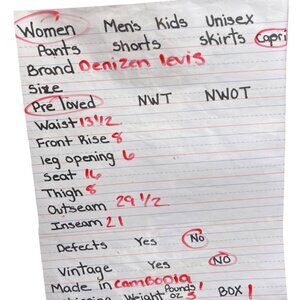 Women Men's Kids Unisex
Pants shorts skirts Capri
Brand Denizen levis
Size
Pre loved NWT NWOT
Waist 13 1/2
Front Rise 8
leg opening 6
Seat 16
Thigh 8
Outseam 29 1/2
Inseam 21
Defects Yes No
Vintage Yes No
Made in Cambodia
Weight Pounds 1 oz 3 BOX 1